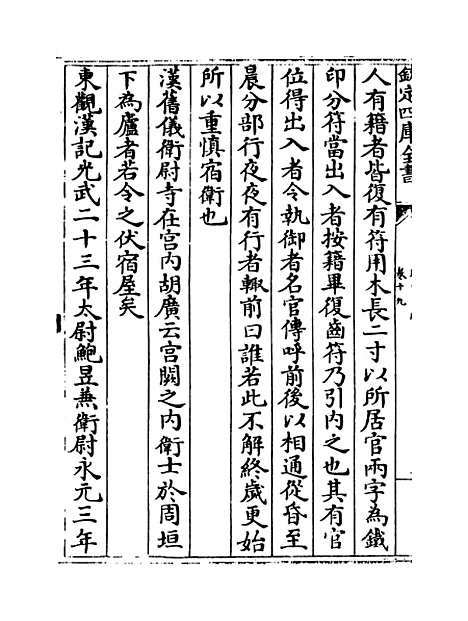 欽定四庫全書
卷十九
人有籍者皆復有符用木長二寸以所居官兩字為鐵
印分符當出入者按籍畢復齒符乃引内之也其有官
位得出入者令執御者名官傳呼前後以相通從昏至
晨分部行夜夜有行者輙前曰誰若此不解終歲更始
所以重慎宿衛也
漢舊儀衛尉寺在宫内胡廣云宫闕之内衛士於周垣
下為廬者若今之伏宿屋矣
東觀漢記光武二十三年太尉鮑昱兼衛尉永元三年